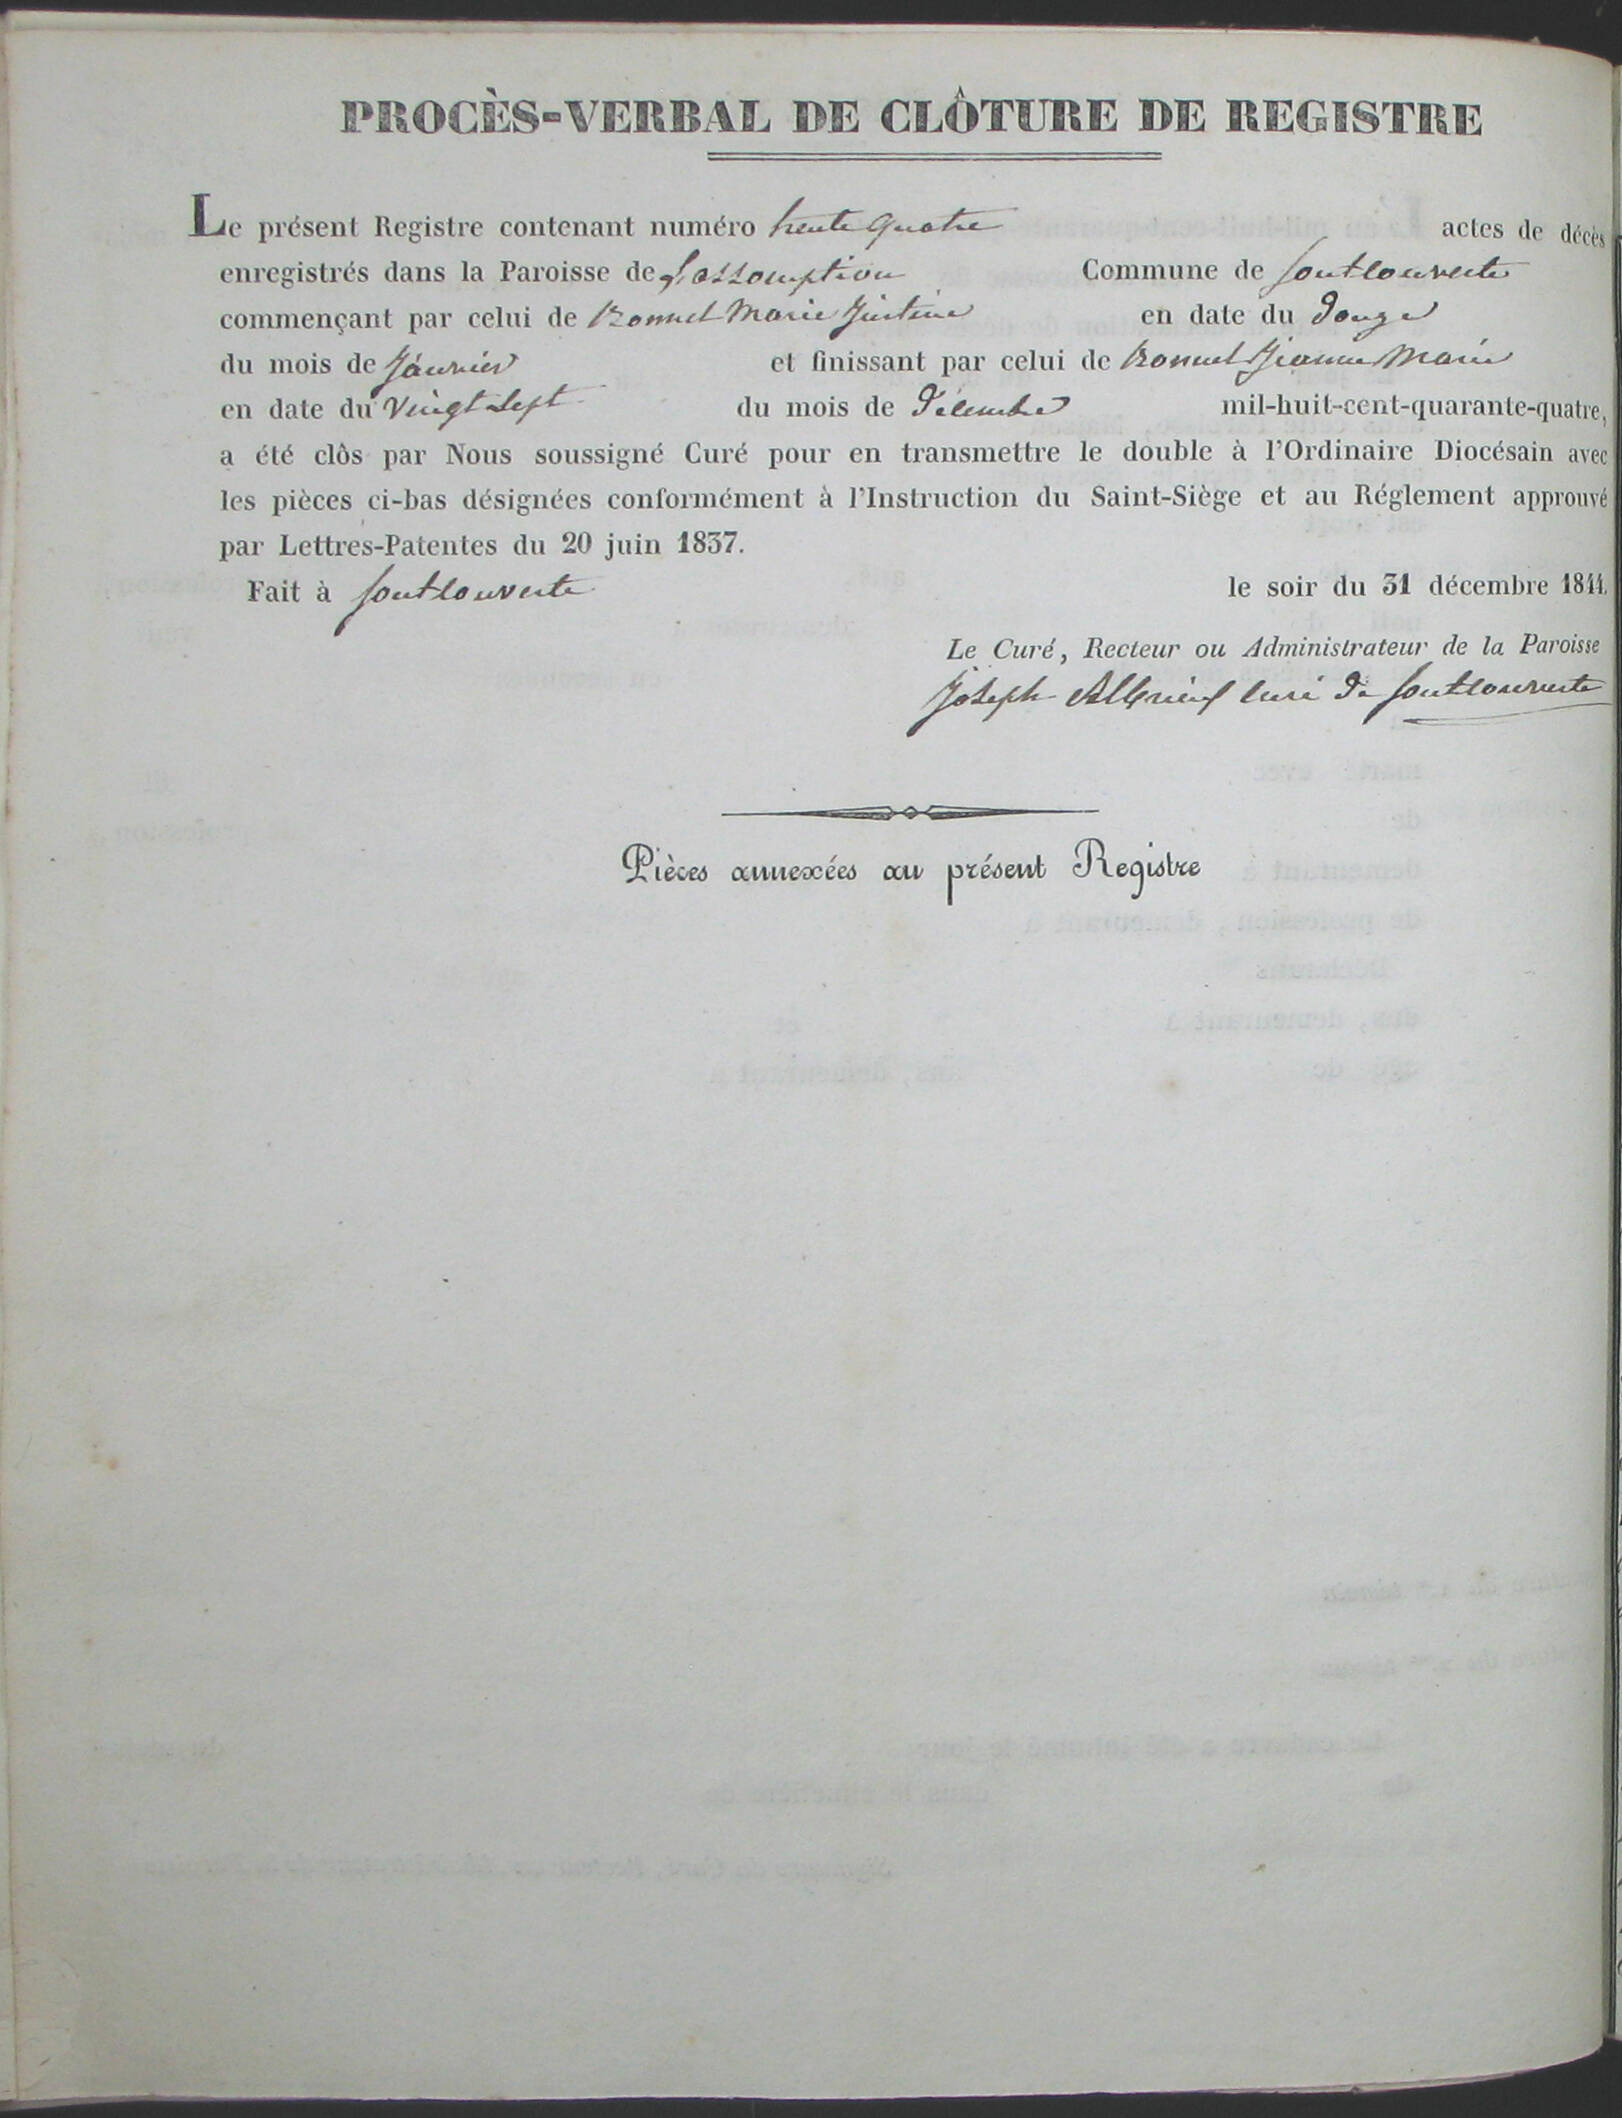 PROCÈS-VERBAL DE CLÔTURE DE REGISTRE
Le présent Registre contenant numéro trente quatre actes de décès
enregistrés dans la Paroisse de L'assomption Commune de Contlouverte
commençant par celui de Bonnet Marie Justine en date du Douze
du mois de Janvier et finissant par celui de Bonnet Jeanne Marie
en date du Vingt Sept du mois de Décembre mil-huit-cent-quarante-quatre,
a été clôs par Nous soussigné Curé pour en transmettre le double à l'Ordinaire Diocésain avec
les pièces ci-bas désignées conformément à l'Instruction du Saint-Siège et au Réglement approuvé
par Lettres-Patentes du 20 juin 1837.
Fait à le soir du 31 décembre 1844.
Le Curé, Recteur ou Administrateur de la Paroisse
Joseph curé de
Pièces annexées au présent Registre